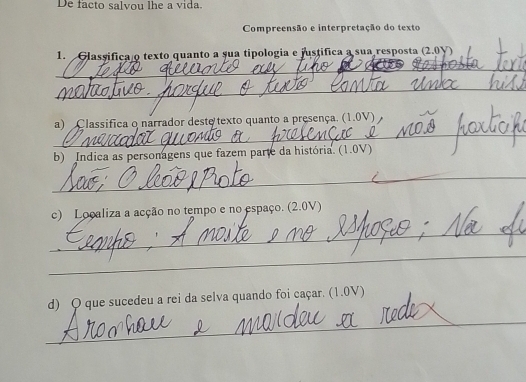 De facto salvou lhe a vida.
Compreensão e interpretação do texto
1. Classifica o texto quanto a sua tipologia e justifica a sua resposta (2.0V)
O texto quanto ao tipo é texto
narrativo. porque o texto conta uma
a) Classifica o narrador deste texto quanto a presença. (1.0V)
O narrador quanto a presença é não
b) Indica as personagens que fazem parte da história. (1.0V)
São; O leão e Rato
c) Localiza a acção no tempo e no espaço. (2.0V)
tempo: A noite e no espaço; Na
d) O que sucedeu a rei da selva quando foi caçar. (1.0V)
Aronhou e mordeu a rede